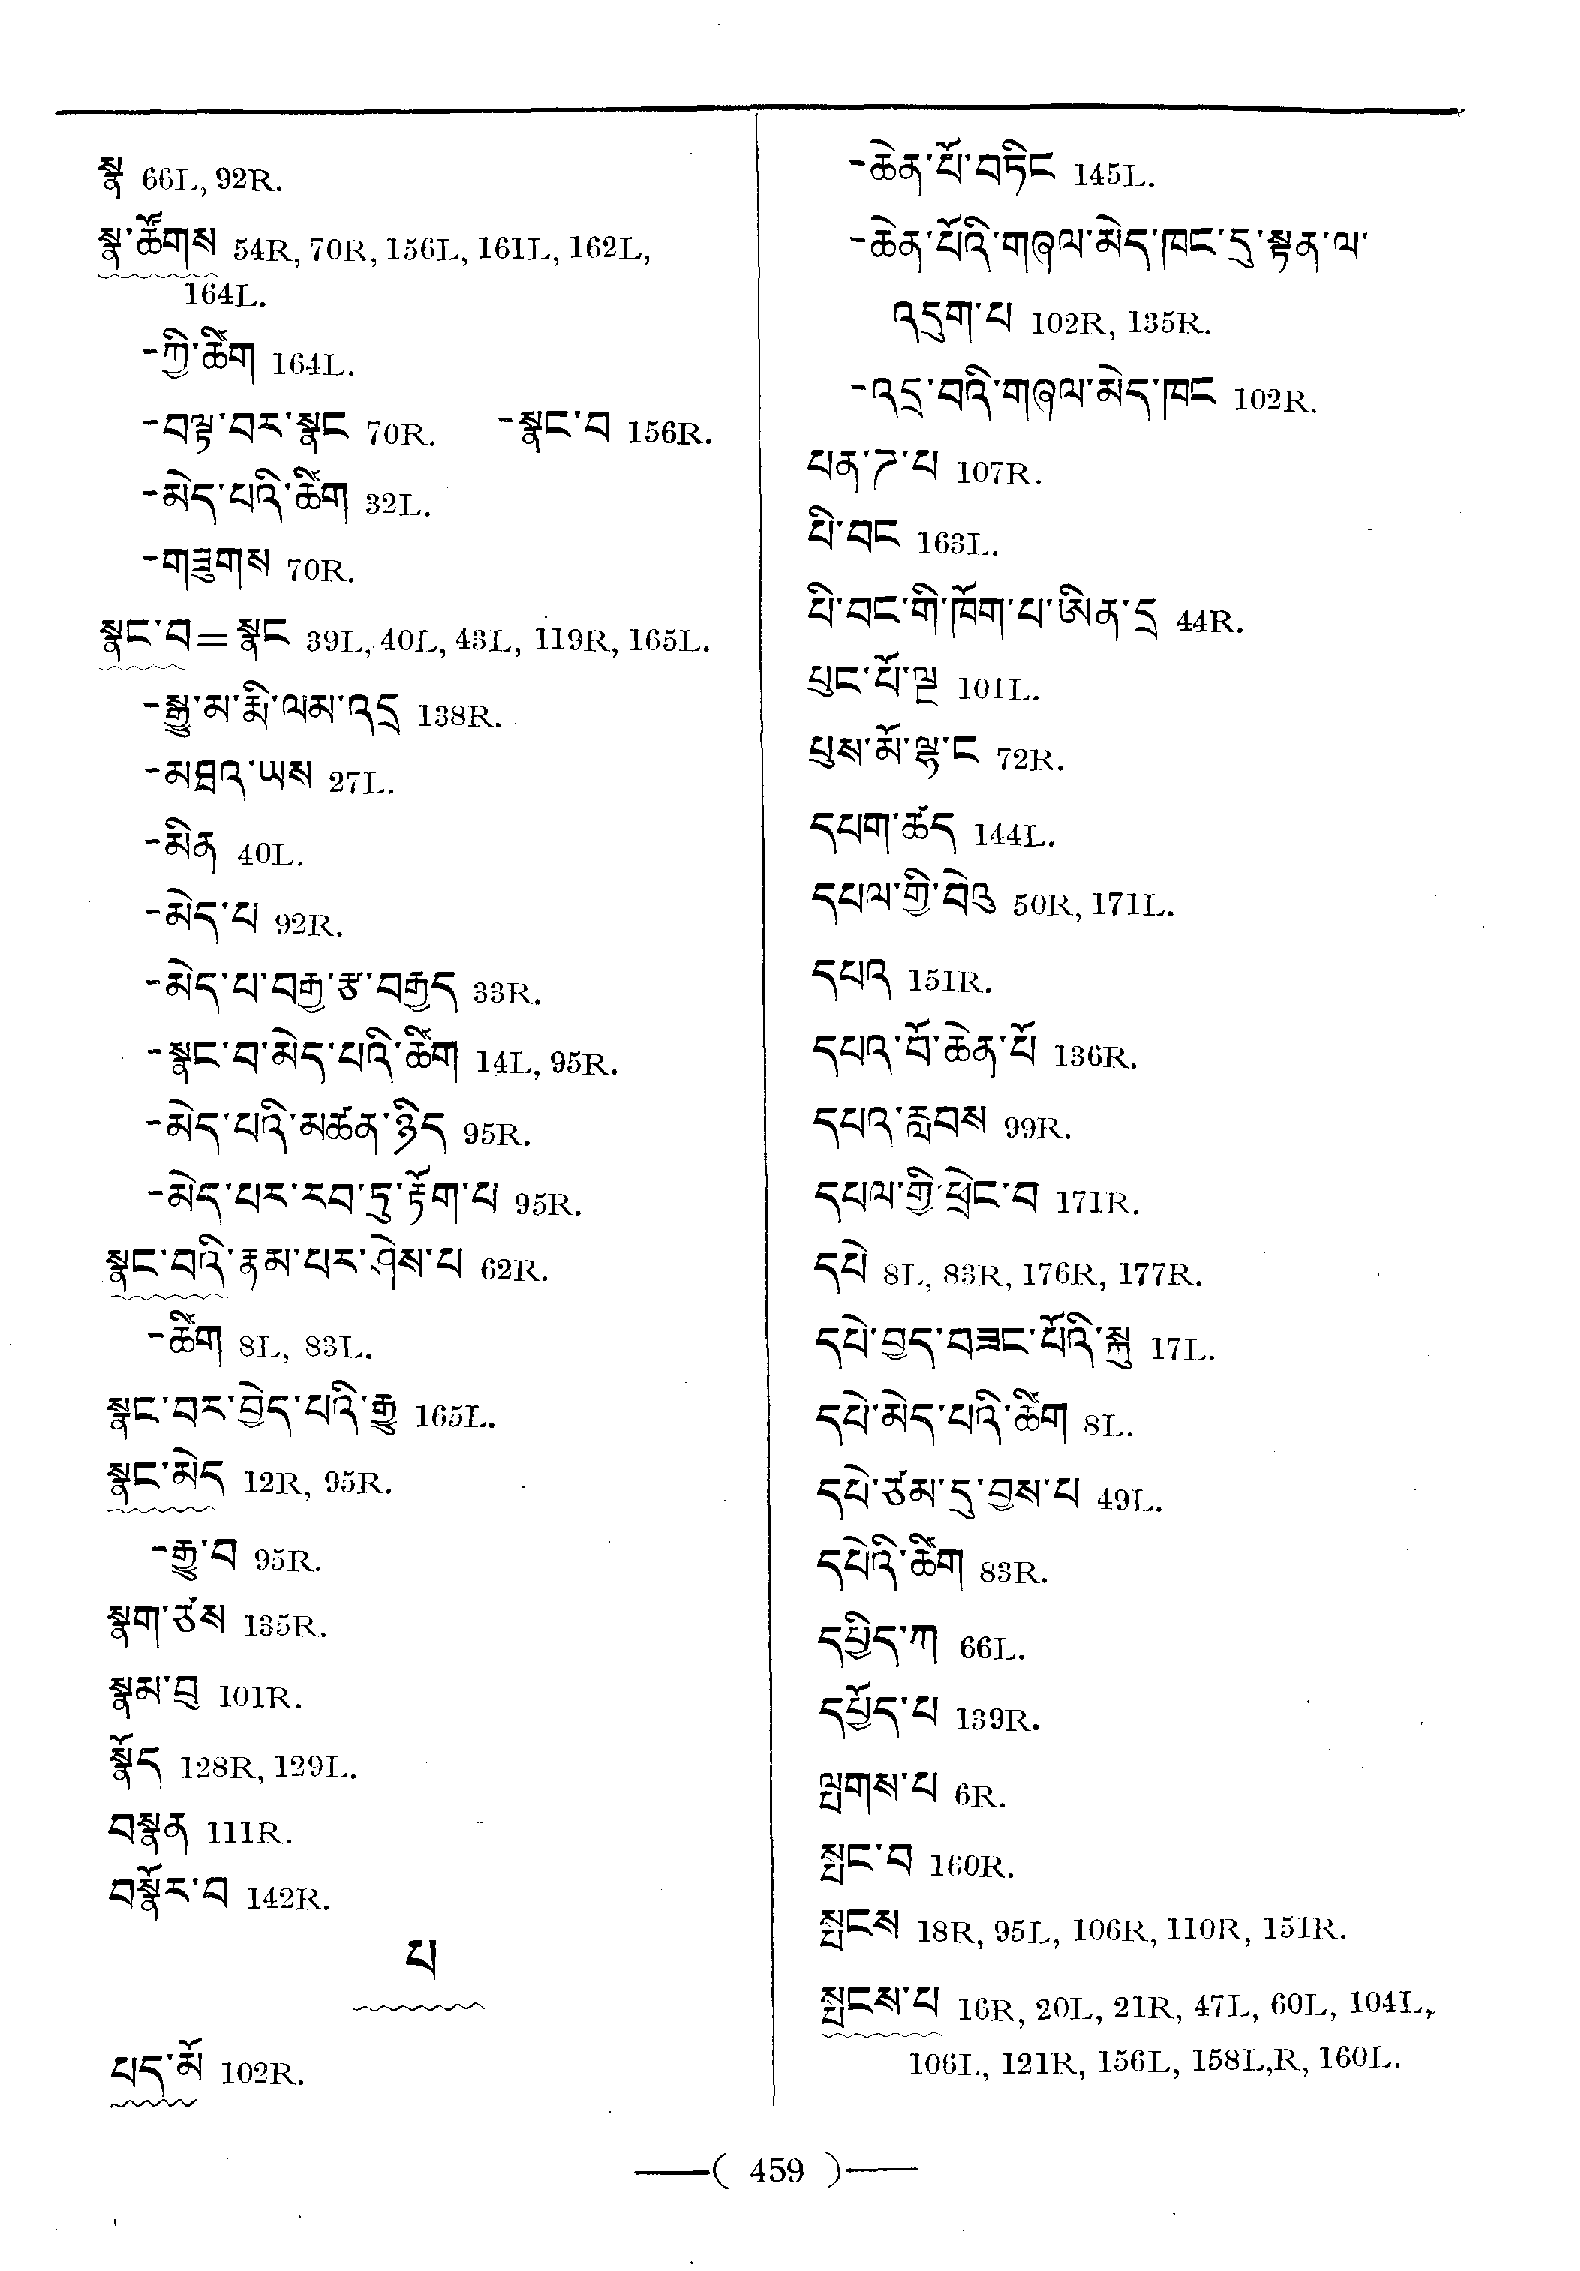 སྣ 66L, 92R.
སྣ་ཚོགས 54R, 70R, 156L, 161L, 162L,
164L.
-ཀྱི་ཚིག 164L.
-བལྟ་བར་སྣང 70R. -སྣང་བ 156R.
-མེད་པའི་ཚིག 32L.
-གཟུགས 70R.
སྣང་བ=སྣང 39L, 40L, 43L, 119R, 165L.
-སྒྱུ་མ་རྨི་ལམ་འདྲ 138R.
-མཐའ་ཡས 27L.
-མིན 40L.
-མེད་པ 92R.
-མེད་པ་བརྒྱ་རྩ་བརྒྱད 33R.
-སྣང་བ་མེད་པའི་ཚིག 14L, 95R.
-མེད་པའི་མཚན་ཉིད 95R.
-མེད་པར་རབ་ཏུ་རྟོག་པ 95R.
སྣང་བའི་རྣམ་པར་ཤེས་པ 62R.
-ཚིག 8L, 83L.
སྣང་བར་བྱེད་པའི་རྒྱུ 165L.
སྣང་མེད 12R, 95R.
-རྒྱུ་བ 95R.
སྣག་ཙས 135R.
སྣམ་བྲ 101R.
སྣོད 128R, 129L.
བསྣན 111R.
བསྣོར་བ 142R.
པ
པད་མོ 102R.
-ཆེན་པོ་བཏིང 145L.
-ཆེན་པོའི་གཞལ་མེད་ཁང་དུ་སྟན་ལ་
འདུག་པ 102R, 135R.
-འདྲ་བའི་གཞལ་མེད་ཁང 102R.
པན་ཊ་པ 107R.
པི་བང 163L.
པི་བང་གི་ཁོག་པ་ཨིན་དྲ 44R.
པུང་པོ་ལྔ 101L.
པུས་མོ་ལྷ་ང 72R.
དཔག་ཚད 144L.
དཔལ་གྱི་བེའུ 50R, 171L.
དཔའ 151R.
དཔའ་བོ་ཆེན་པོ 136R.
དཔའ་རླབས 99R.
དཔལ་གྱི་ཕྲེང་བ 171R.
དཔེ 8L, 83R, 176R, 177R.
དཔེ་བྱད་བཟང་པོའི་སྐུ 17L.
དཔེ་མེད་པའི་ཚིག 8L.
དཔེ་ཙམ་དུ་བྱས་པ 49L.
དཔེའི་ཚིག 83R.
དཔྱིད་ཀ 66L.
དཔྱོད་པ 139R.
ལྤགས་པ 6R.
སྤང་བ 160R.
སྤངས 18R, 95L, 106R, 110R, 151R.
སྤངས་པ 16R, 20L, 21R, 47L, 60L, 104L,
106L, 121R, 156L, 158L,R, 160L.
( 459 )